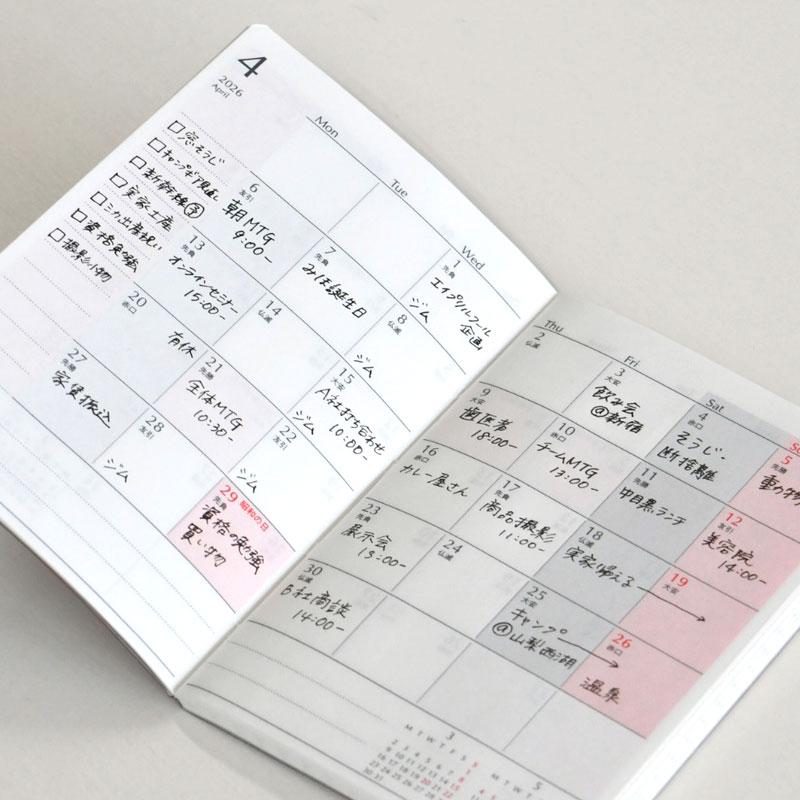 4
2026
April
Mon
Tue
Wed
□窓そうじ
□キャンプギア見直し
□新幹線予
□実家土産
□ミカ出産祝い
□資格勉強
□撮影小物
1
先負
エイプリルフール
企画
6
友引
朝MTG
9:00-
7
先負
みほ誕生日
8
仏滅
ジム
13
先負
オンラインセミナー
15:00-
14
仏滅
15
大安
ジム
A社打ち合わせ
10:00-
20
赤口
有休
21
先勝
全体MTG
10:30-
22
友引
ジム
27
先勝
家賃振込
28
友引
ジム
29 昭和の日
先負
資格の勉強
買い物
ジム
Thu
Fri
Sat
2
仏滅
3
大安
飲み会
@新宿
4
赤口
そうじ・
断捨離
5
先勝
9
大安
歯医者
18:00-
10
赤口
チームMTG
13:00-
11
先勝
中目黒ランチ
12
友引
美容院
14:00-
16
赤口
カレー屋さん
17
先負
商品撮影
11:00-
18
仏滅
実家帰る
19
大安
23
先負
展示会
13:00-
24
仏滅
25
大安
キャンプ
@山梨西湖
26
赤口
温泉
30
仏滅
B社商談
14:00-
3
M T W T F S S
5
M T W T